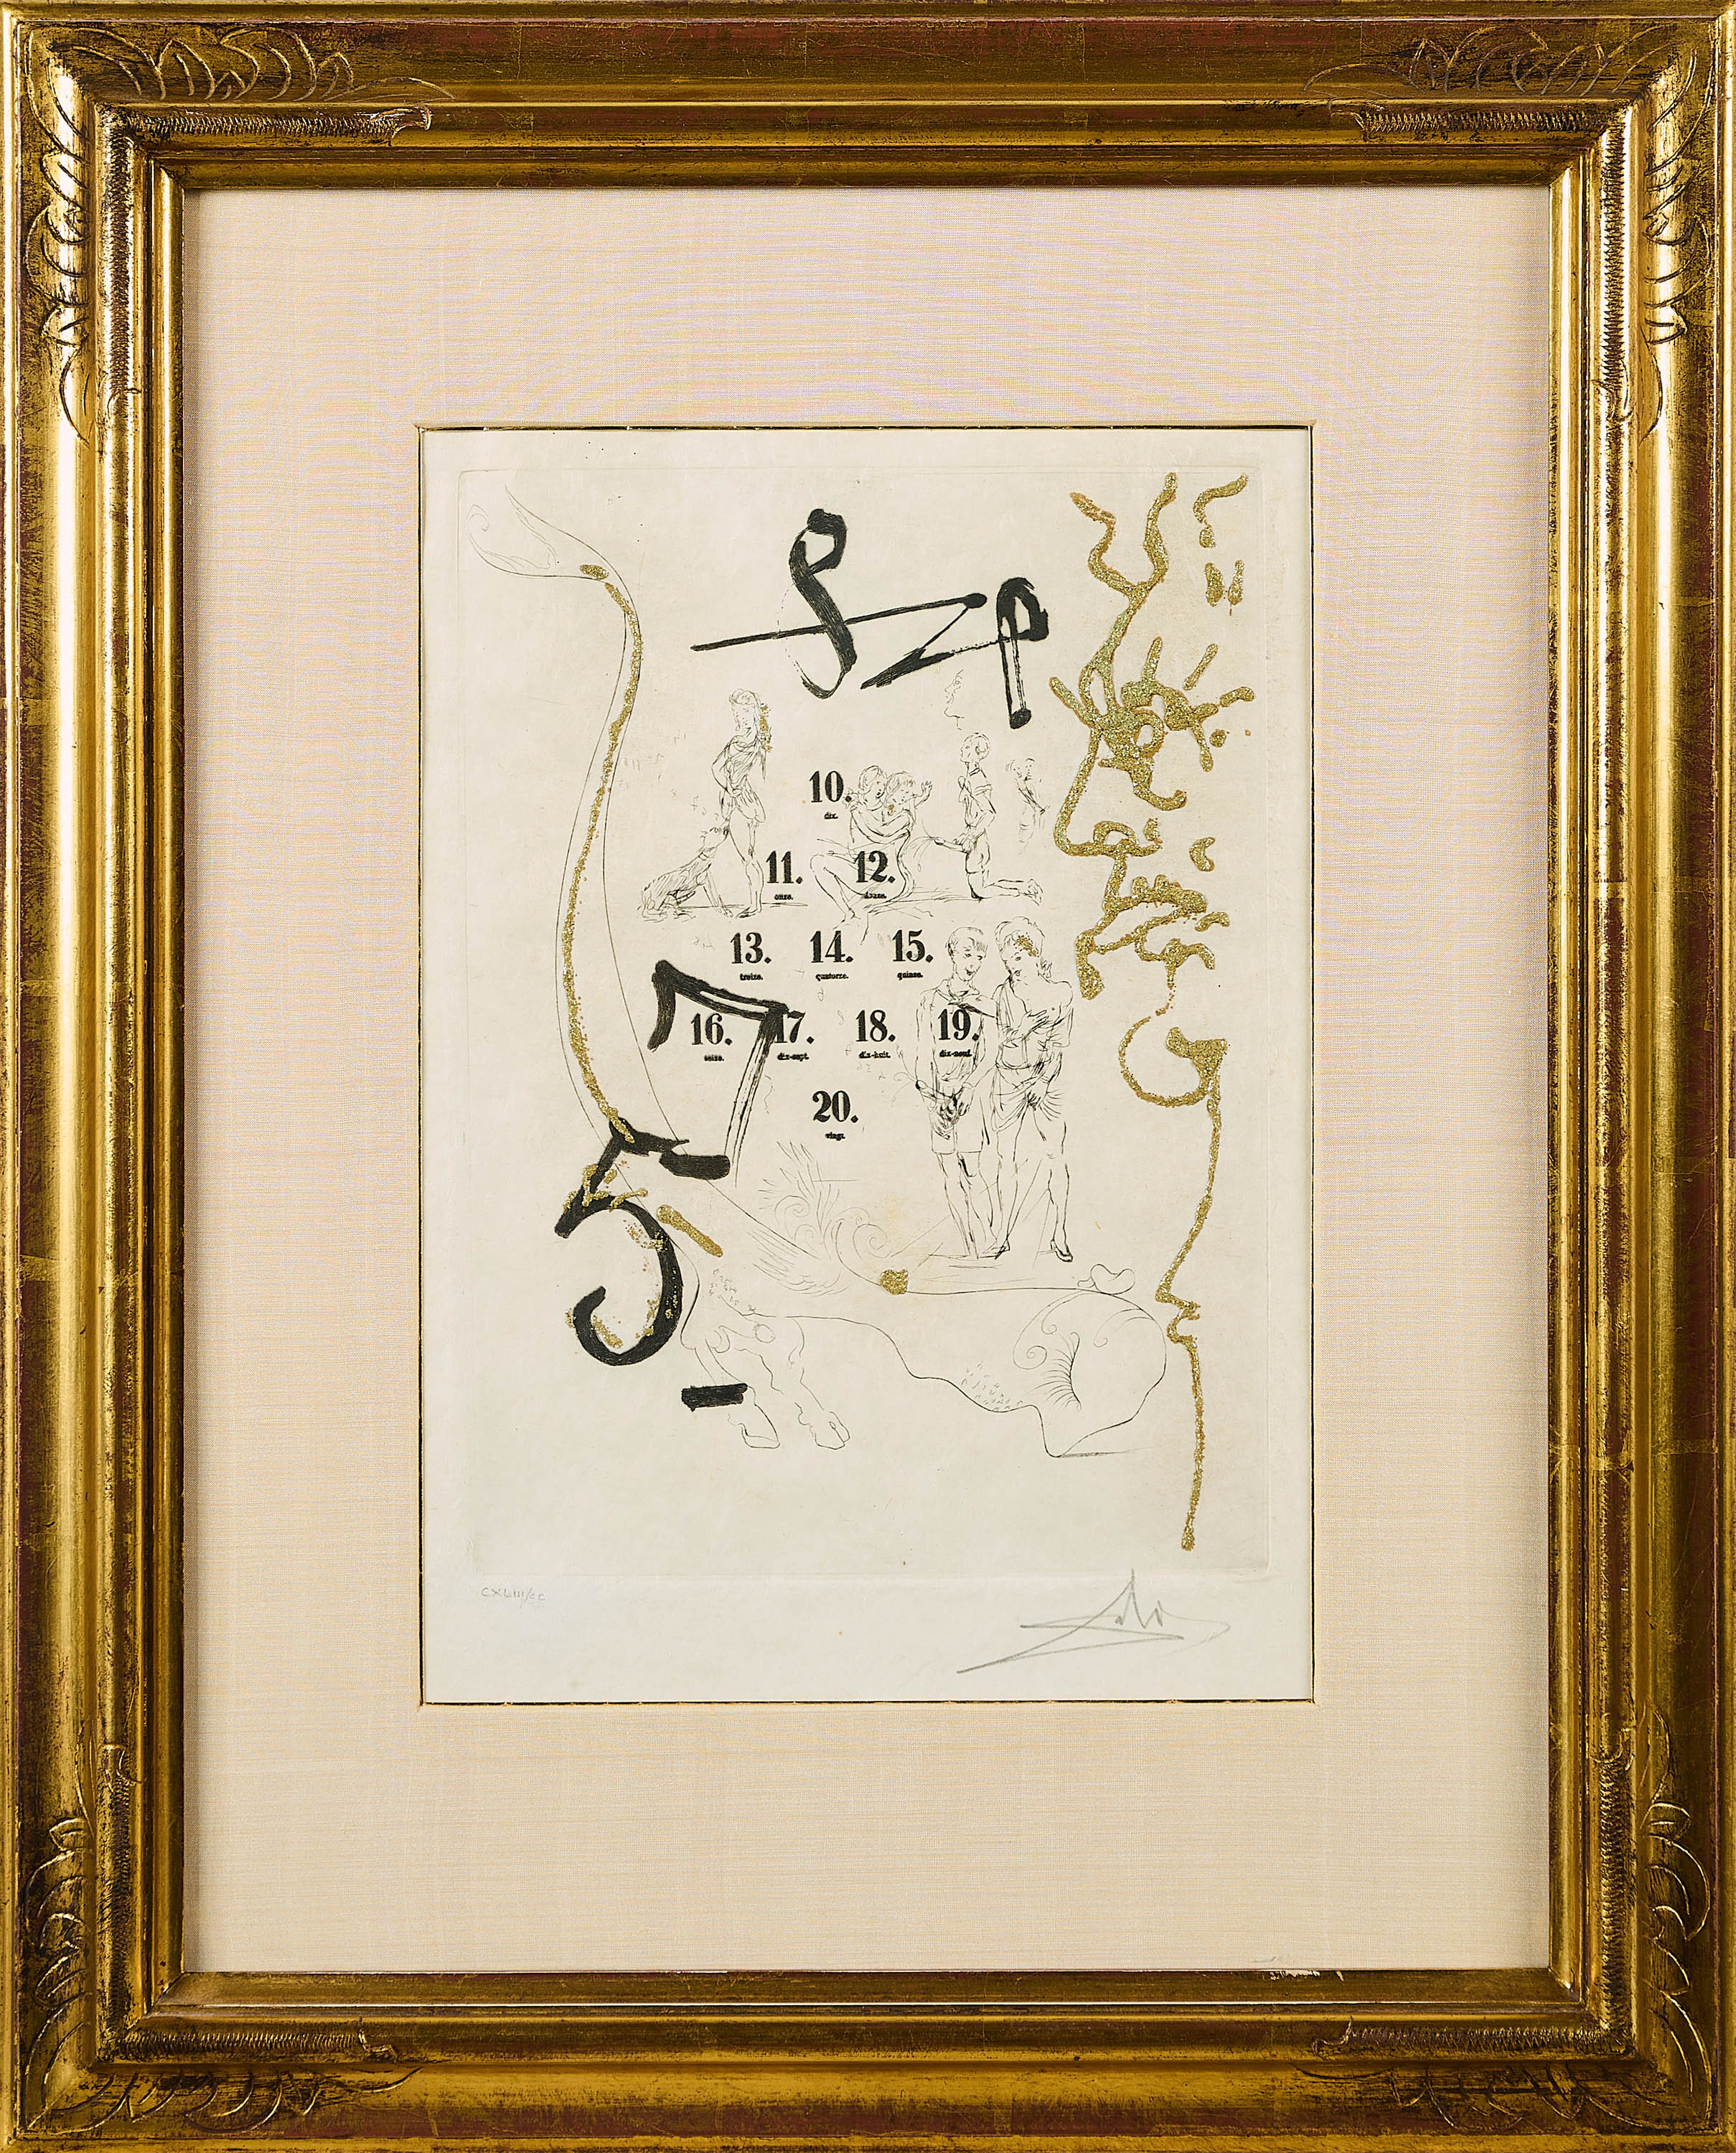 10.
dix.
11. 12.
onze. douze.
13. 14. 15.
treize. quatorze. quinze.
16. 17. 18. 19.
seize. dix-sept. dix-huit. dix-neuf.
20.
vingt.
7
5
CXLIII/CC
Dalí